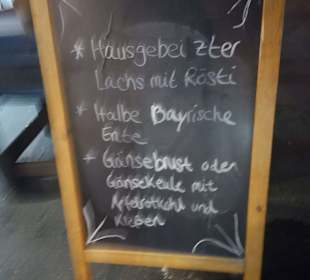 * Hausgebeizter
Lachs mit Rösti
* Halbe Bayrische
Ente
* Gänsebrust oder
Gänsekeule mit
Apfelrotkohl und